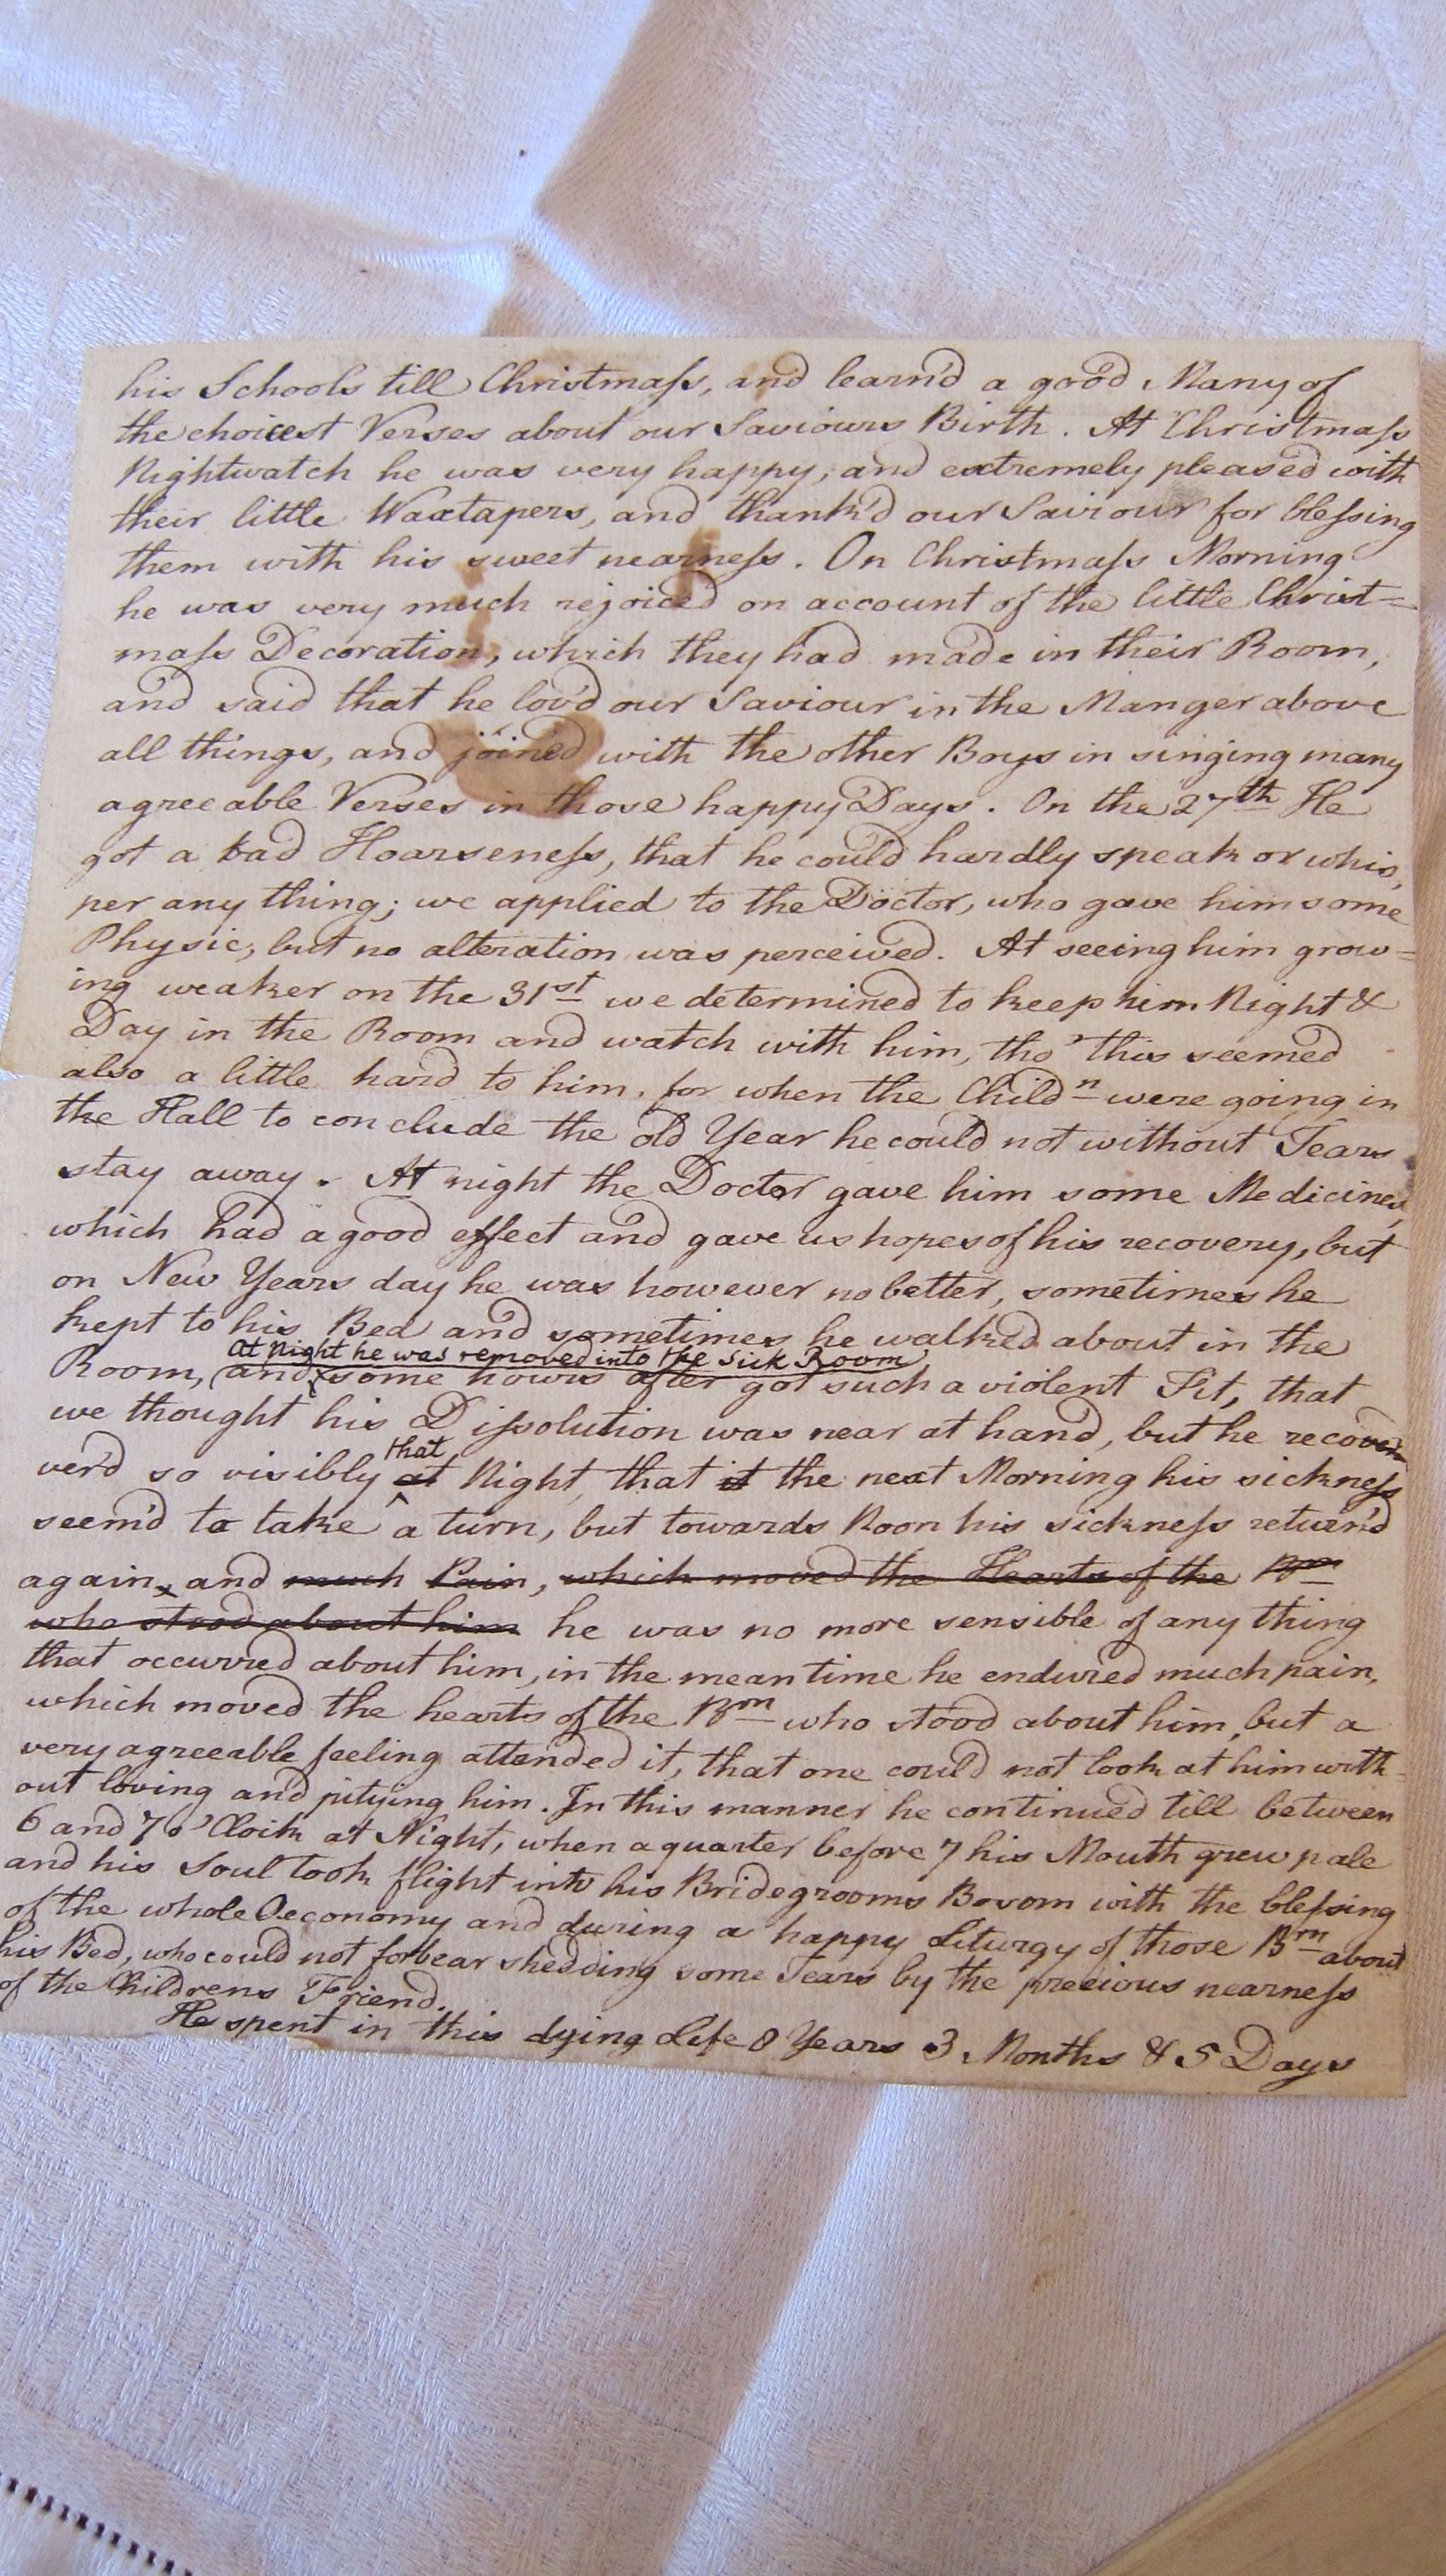 his Schools till Christmaſs, and learn'd a good Many of
the choicest Verses about our Saviours Birth. At Christmaſs
Nightwatch he was very happy, and extremely pleased with
their little Waxtapers, and thank'd our Saviour for bleſsing
them with his sweet nearneſs. On Christmaſs Morning
he was very much rejoiced on account of the little Christ=
maſs Decoration, which they had made in their Room,
and said that he lov'd our Saviour in the Manger above
all things, and joined with the other Boys in singing many
agreeable Verses in those happy Days. On the 27th He
got a bad Hoarseneſs, that he could hardly speak or whis,
per any thing; we applied to the Doctor, who gave him some
Physic, but no alteration was perceived. At seeing him grow=
ing weaker on the 31st we determined to keep him Night &
Day in the Room and watch with him, tho' this seemed
also a little hard to him, for when the Childn were going in
the Hall to conclude the old Year he could not without Tears
stay away. At night the Doctor gave him some Medicines,
which had a good effect and gave us hopes of his recovery, but
on New Years day he was however no better, sometimes he
kept to his Bed and sometimes he walked about in the
at Night he was removed into the Sick Room
Room, (and some hours after got such a violent Fit, that
we thought his Diſsolution was near at hand, but he recover
that
ver'd so visibly at Night, that it the next Morning his sickneſs
seem'd to take a turn, but towards Noon his sickneſs return'd
again, and much Pain, which moved the Hearts of the Brn
who stood about him he was no more sensible of any thing
that occurred about him, in the mean time he endured much pain,
which moved the hearts of the Brn who stood about him, but a
very agreeable feeling attended it, that one could not look at him with=
out loving and pitying him. In this manner he continued till between
6 and 7 o'Clock at Night, when a quarter before 7 his Mouth grew pale
and his Soul took flight into his Bridegrooms Bosom with the bleſsing
of the whole Oeconomy and during a happy Liturgy of those Brn about
his Bed, who could not forbear shedding some Tears by the precious nearneſs
of the Childrens Friend.
He spent in this dying Life 8 Years 3 Months & 5 Days